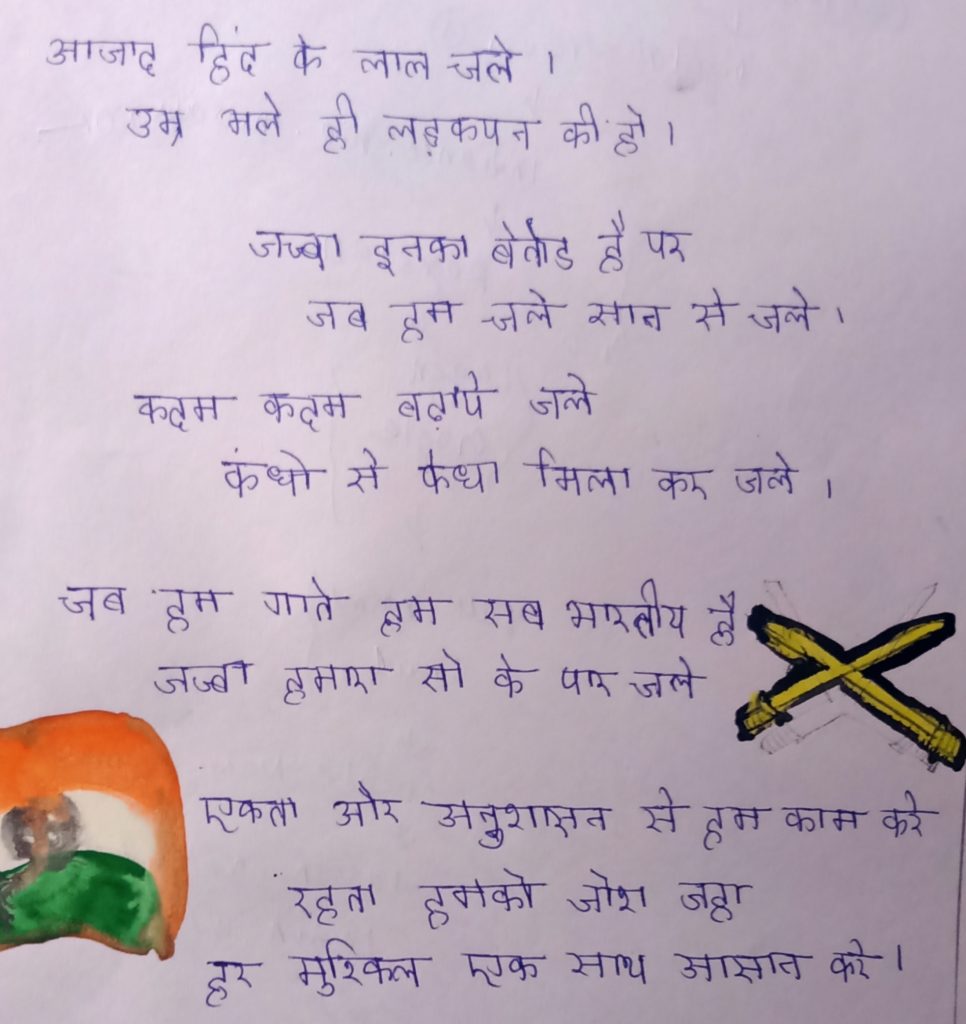 आजाद हिंद के लाल चले ।
उम्र भले ही लड़कपन की हो ।
जज्बा इनका बेतोड है पर
जब हम चले सान से चले ।
कदम कदम बढ़ाये चले
कंधो से कंधा मिला कर चले ।
जब हम गाते हम सब भारतीय है
जज्बा हमारा सो के पार चले
एकता और अनुशासन से हम काम करे
रहता हमको जोश जहा
हर मुश्किल एक साथ आसान करे ।